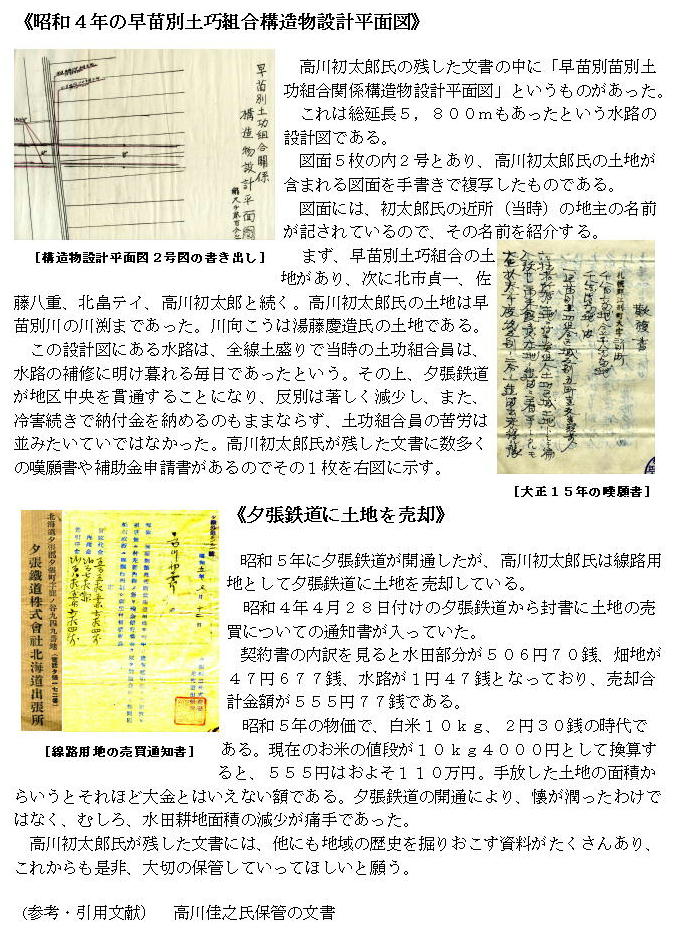 《昭和４年の早苗別土巧組合構造物設計平面図》
高川初太郎氏の残した文書の中に「早苗別苗別土
功組合関係構造物設計平面図」というものがあった。
これは総延長５，８００ｍもあったという水路の
設計図である。
図面５枚の内２号とあり、高川初太郎氏の土地が
含まれる図面を手書きで複写したものである。
図面には、初太郎氏の近所（当時）の地主の名前
が記されているので、その名前を紹介する。
早苗別土功組合關係
構造物設計平面圖
［構造物設計平面図２号図の書き出し］
まず、早苗別土巧組合の土
地があり、次に北市貞一、佐
藤八重、北畠テイ、高川初太郎と続く。高川初太郎氏の土地は早
苗別川の川渕まであった。川向こうは湯藤慶造氏の土地である。
この設計図にある水路は、全線土盛りで当時の土功組合員は、
水路の補修に明け暮れる毎日であったという。その上、夕張鉄道
が地区中央を貫通することになり、反別は著しく減少し、また、
冷害続きで納付金を納めるのもままならず、土功組合員の苦労は
並みたいていではなかった。高川初太郎氏が残した文書に数多く
の嘆願書や補助金申請書があるのでその１枚を右図に示す。
［大正１５年の嘆願書］
《夕張鉄道に土地を売却》
昭和５年に夕張鉄道が開通したが、高川初太郎氏は線路用
地として夕張鉄道に土地を売却している。
昭和４年４月２８日付けの夕張鉄道から封書に土地の売
買についての通知書が入っていた。
契約書の内訳を見ると水田部分が５０６円７０銭、畑地が
４７円６７７銭、水路が１円４７銭となっており、売却合
計金額が５５５円７７銭である。
北海道夕張郡夕張町字鹿ノ谷九四九番地
夕張鐵道株式會社北海道出張所
［線路用地の売買通知書］
昭和５年の物価で、白米１０ｋｇ、２円３０銭の時代で
ある。現在のお米の値段が１０ｋｇ４０００円として換算す
ると、５５５円はおよそ１１０万円。手放した土地の面積か
らいうとそれほど大金とはいえない額である。夕張鉄道の開通により、懐が潤ったわけで
はなく、むしろ、水田耕地面積の減少が痛手であった。
高川初太郎氏が残した文書には、他にも地域の歴史を掘りおこす資料がたくさんあり、
これからも是非、大切の保管していってほしいと願う。
（参考・引用文献）　高川佳之氏保管の文書